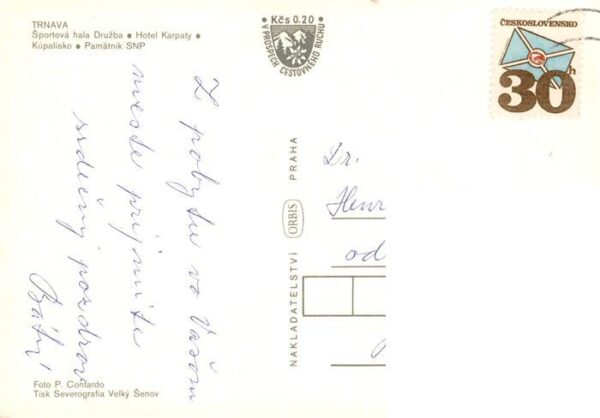 TRNAVA
Športová hala Družba • Hotel Karpaty •
Kúpalisko • Pamätník SNP
Kčs 0.20
V PROSPECH CESTOVNÉHO RUCHU
ČESKOSLOVENSKO
30h
Z pobytu vo Vašom
meste prijmite
srdečný pozdrav
NAKLADATELSTVÍ ORBIS PRAHA
Dr.
Henr
od
Foto P. Contardo
Tisk Severografia Velký Šenov